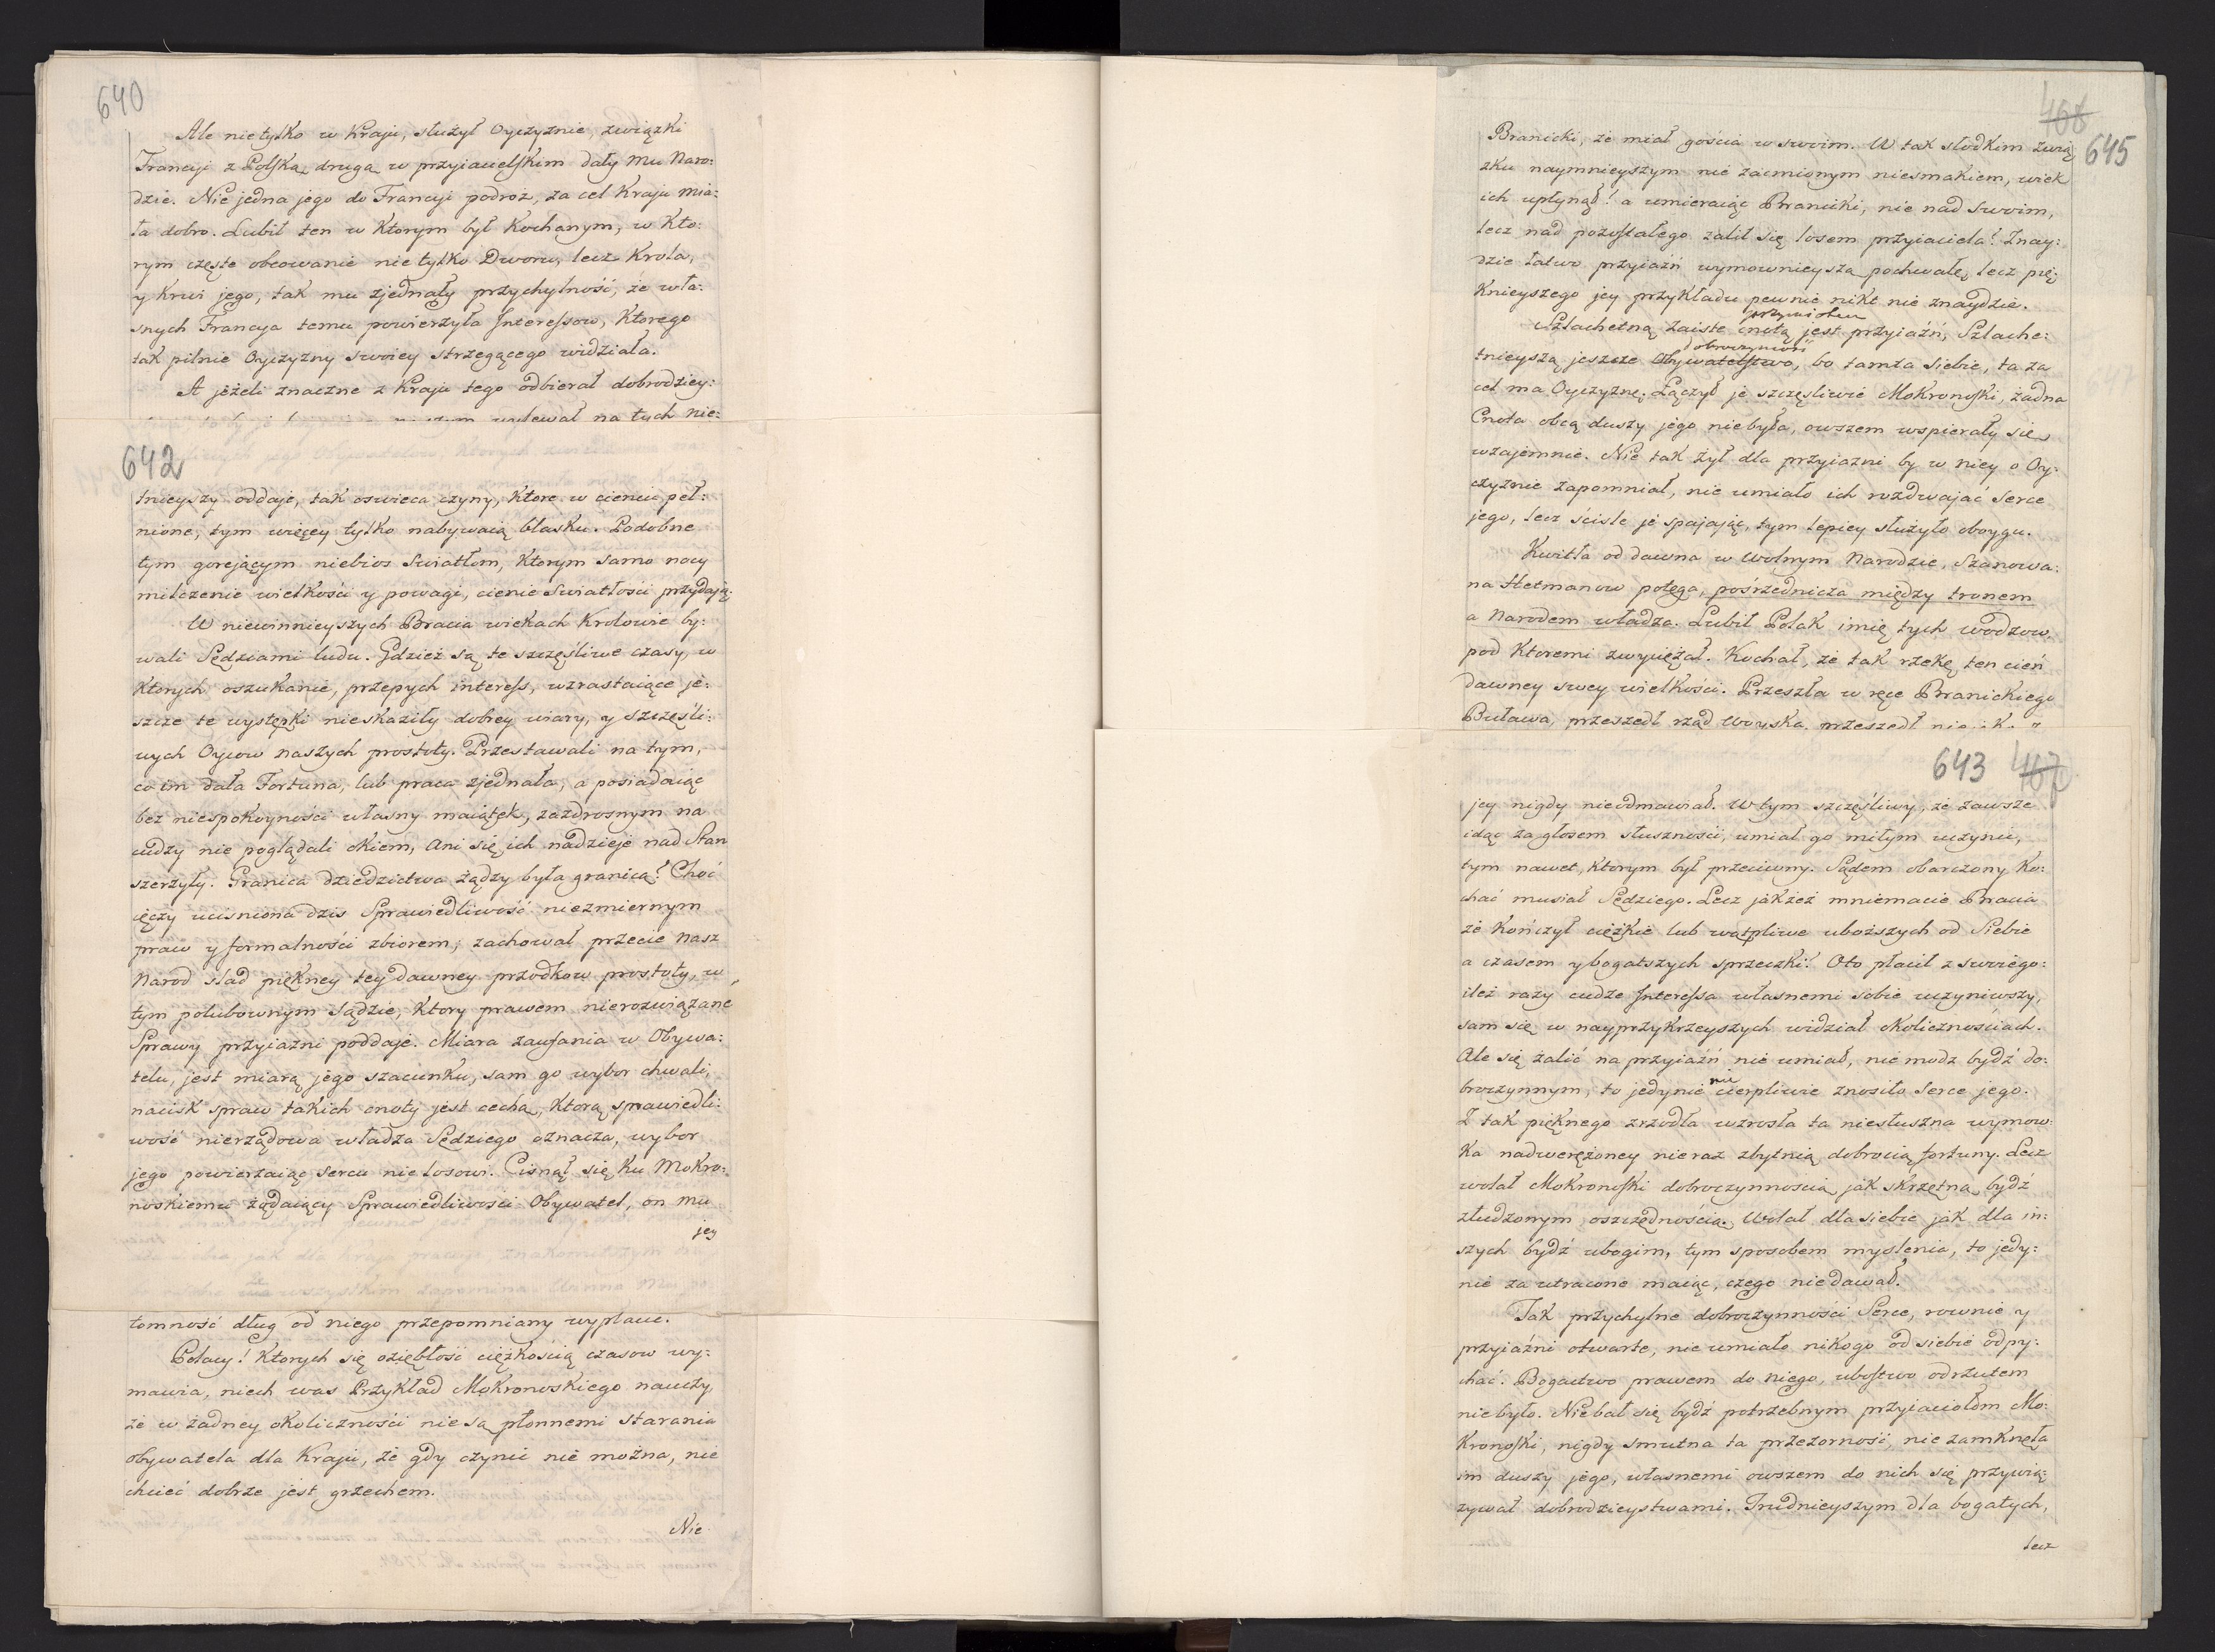 640
Ale nie tylko w Kraju, służył Oyczyznie, związki
Francyi z Polską, drugą w przyiacielskim dały mu Naro:
dzie. Nie jedna jego do Francyi podroż, za cel Kraju mia:
ła dobro. Lubił ten w Ktorym był Kochanym, w Kto:
rym częste obcowanie nie tylko Dworu, lecz Krola,
y Krwi jego, tak mu zjednały przychylność, że wła:
snych Francya temu powierzyła Interessow, Ktorego
tak pilnie Oyczyzny swoiey strzegącego widziała.
A jeżeli znaczne z Kraju tego odbierał dobrodziey:
wylewał na tych nie:
642
tnieyszy oddaje, tak oswieca czyny, Ktore w cieniu peł:
nione, tym więcey tylko nabywaią blasku. Podobne
tym gorejącym niebios Swiatłom, Ktorym samo nocy
milczenie wielkości y powagi, cienie Swiatłości przydają.
W niewinnieyszych Bracia wiekach Krolowie by:
wali Sędziami ludu. Gdzież są te szczęśliwe czasy, w
Ktorych oszukanie, przepych interess, wzrastaiące je:
szcze te występki nieskaziły dobrey wiary, y szczęśli:
wych Oycow naszych prostoty. Przestawali na tym,
co im dała Fortuna, lub praca zjednała, a posiadaiąc
bez niespokoyności własny maiątek, zazdrosnym na
cudzy nie poglądali okiem, ani się ich nadzieje nad Stan
szerzyły. Granica dziedzictwa żądzy była granicą! Choć
ięczy ucisniona dzis Sprawiedliwość niezmiernym
praw y formalności zbiorem, zachował przecie nasz
Narod slad piękney tey dawney przodkow prostoty, w
tym polubownym Sądzie, Ktory prawem nierozwiązane
Sprawy przyiazni poddaje. Miara zaufania w Obywa:
telu, jest miarą jego szacunku, sam go wybor chwali,
nacisk spraw takich cnoty jest cechą, Ktorą sprawiedli:
wość nierządowa władza Sędziego oznacza, wybor
jego powierzaiąc Sercu nie losowi. Cisnął się Ku Mokro:
noskiemu żądaiący Sprawiedliwości Obywatel, on mu
jey
tomność dług od niego przepomniany wypłaci.
Polacy! Ktorych się oziębłość ciężkością czasow wy:
mawia, niech was Przykład Mokronoskiego nauczy,
że w żadney okoliczności nie są płonnemi starania
obywatela dla Kraju, że gdy czynić nie można, nie
chcieć dobrze jest grzechem.
Nie
468
645
Branicki, że miał gościa w swoim. W tak słodkim zwią
zku naymnieyszym nie zacmionym niesmakiem, wiek
ich upłynął! a umieraiąc Branicki, nie nad swoim,
lecz nad pozostałego zalił się losem przyiaciela! Znay:
dzie łatwo przyiaźń wymownieyszą pochwałę, lecz pię:
Knieyszego jey przykładu pewnie nikt nie znaydzie.
przymiotem
Szlachetną zaiste cnotą jest przyiaźń, Szlache:
dobroczynność
tnieyszą jeszcze Obywatelstwo, bo tamta siebie, ta za
cel ma Oyczyznę. Łączył je szczęśliwie Mokronoski, żadna
Cnota obcą duszy jego niebyła, owszem wspierały się
wzajemnie. Nie tak żył dla przyiazni by w niey o Oy:
czyznie zapomniał, nie umiało ich rozdwajać Serce
jego, lecz ściśle je spajając, tym lepiey służyło oboygu.
Kwitła od dawna w wolnym Narodzie, Szanowa:
na Hetmanow potęga, pośrzednicza między tronem
a Narodem władza. Lubił Polak imię tych wodzow,
pod Ktoremi zwyciężał. Kochał, że tak rzekę, ten cień
dawney swey wielkości. Przeszła w ręce Branickiego
Buława, przeszedł rząd Woyska, przeszedł
643 467
jey nigdy nieodmawiał. W tym szczęśliwy, że zawsze
idąc za głosem słuszności, umiał go miłym uczynić,
tym nawet, Ktorym był przeciwny. Sądem obarczony Ko:
chać musiał Sędziego. Lecz jakżeż mniemacie Bracia
że Kończył ciężkie lub wątpliwe uboższych od Siebie
a czasem y bogatszych sprzeczki? Oto płacił z swoiego:
ileż razy cudze Interessa własnemi sobie uczyniwszy,
sam się w nayprzykrzeyszych widział okolicznościach.
Ale się żalić na przyiaźń nie umiał, nie modz bydź do:
nie
broczynnym, to jedynie cierpliwie znosiło Serce jego.
Z tak pięknego zrzodła wzrosła ta niesłuszna wymow:
Ka nadwerężoney nie raz zbytnią dobrocią fortuny. Lecz
wolał Mokronoski dobroczynnością, jak skrzętną bydź
złudzonym oszczędnością. Wolał dla siebie jak dla in:
szych bydź ubogim, tym sposobem myslenia, to jedy:
nie za utracone maiąc, czego niedawał.
Tak przychylne dobroczynności Serce, rownie y
przyiaźni otwarte, nie umiało nikogo od siebie odpy:
chać. Bogactwo prawem do niego, ubostwo odrzutem
niebyło. Niebał się bydź potrzebnym przyiaciołom Mo:
Kronoski, nigdy smutna ta przezorność, nie zamknęła
im duszy jego, własnemi owszem do nich się przywią:
zywał dobrodzieystwami. Trudnieyszym dla bogatych,
lecz